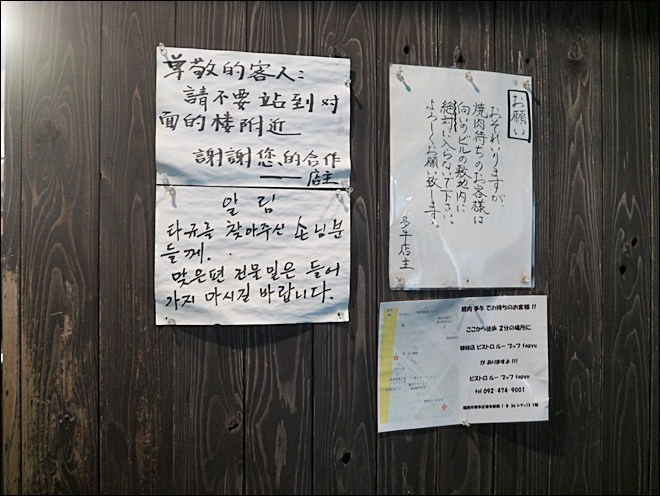 尊敬的客人:
請不要站到对
面的楼附近
謝謝您的合作
——店主
알림
타규를 찾아주신 손님분
들께.
맞은편 건물밑은 들어
가지 마시길 바랍니다.
お願い
おそれいりますが
焼肉待ちのお客様は
向いのビルの敷地内に
絶対に入らないで下さい。
よろしくお願い致します。
多牛店主
焼肉 多牛でお待ちのお客様 !!
ここから徒歩 2分の場所に
姉妹店 ビストロ ルー プップ fapyu
が ありますよ !!!
ビストロ ルー プップ fapyu
tel 092-474-9001